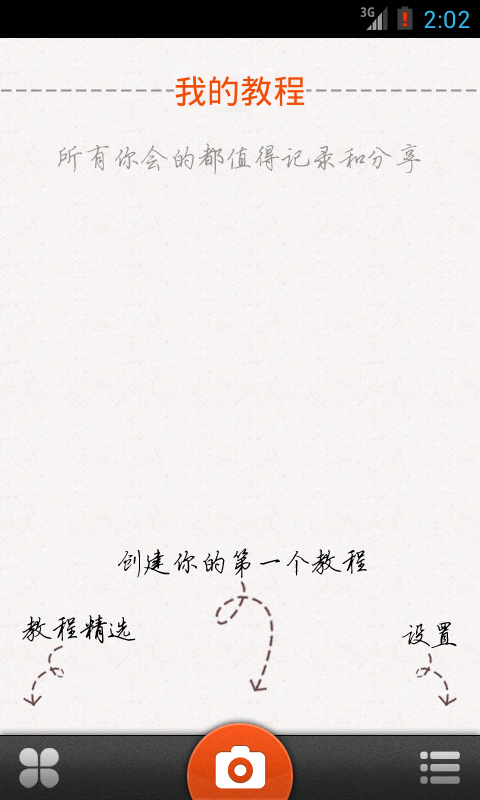 3G 2:02
我的教程
所有你会的都值得记录和分享
创建你的第一个教程
教程精选
设置